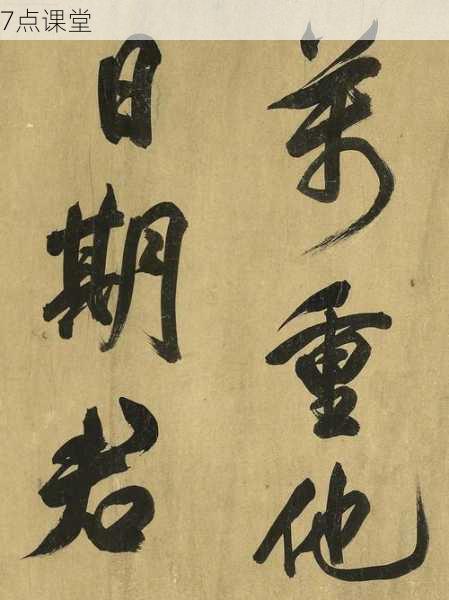 7点课堂
萬重他
日期君